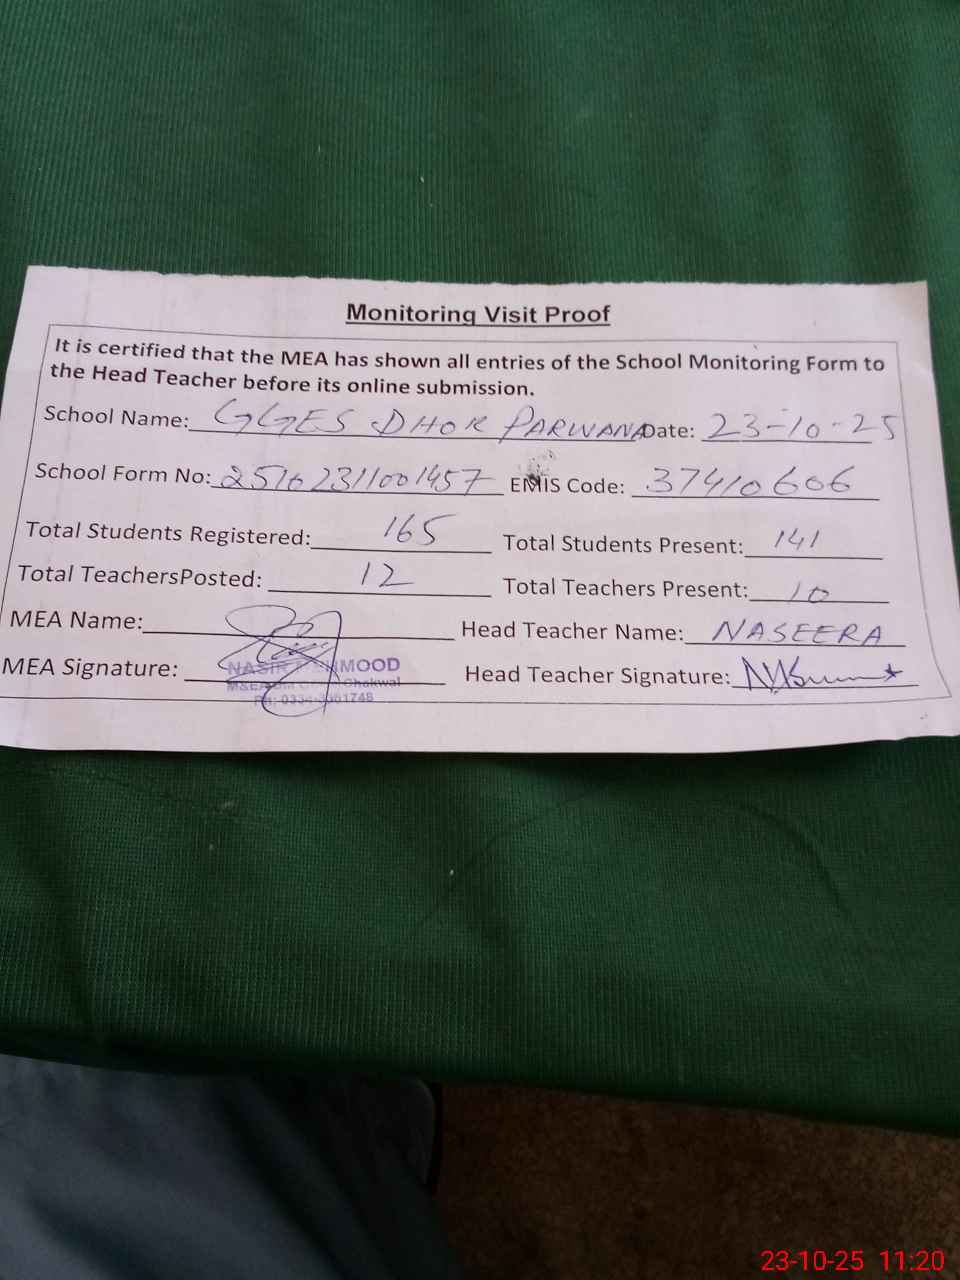 Monitoring Visit Proof
It is certified that the MEA has shown all entries of the School Monitoring Form to
the Head Teacher before its online submission.
School Name: GGES DHOK PARWANA Date: 23-10-25
School Form No: 25102311001457 EMIS Code: 37410606
Total Students Registered: 165 Total Students Present: 141
Total TeachersPosted: 12 Total Teachers Present: 10
MEA Name: Head Teacher Name: NASEERA
MEA Signature: Head Teacher Signature:
NASIR MOOD
Chakwal
23-10-25 11:20